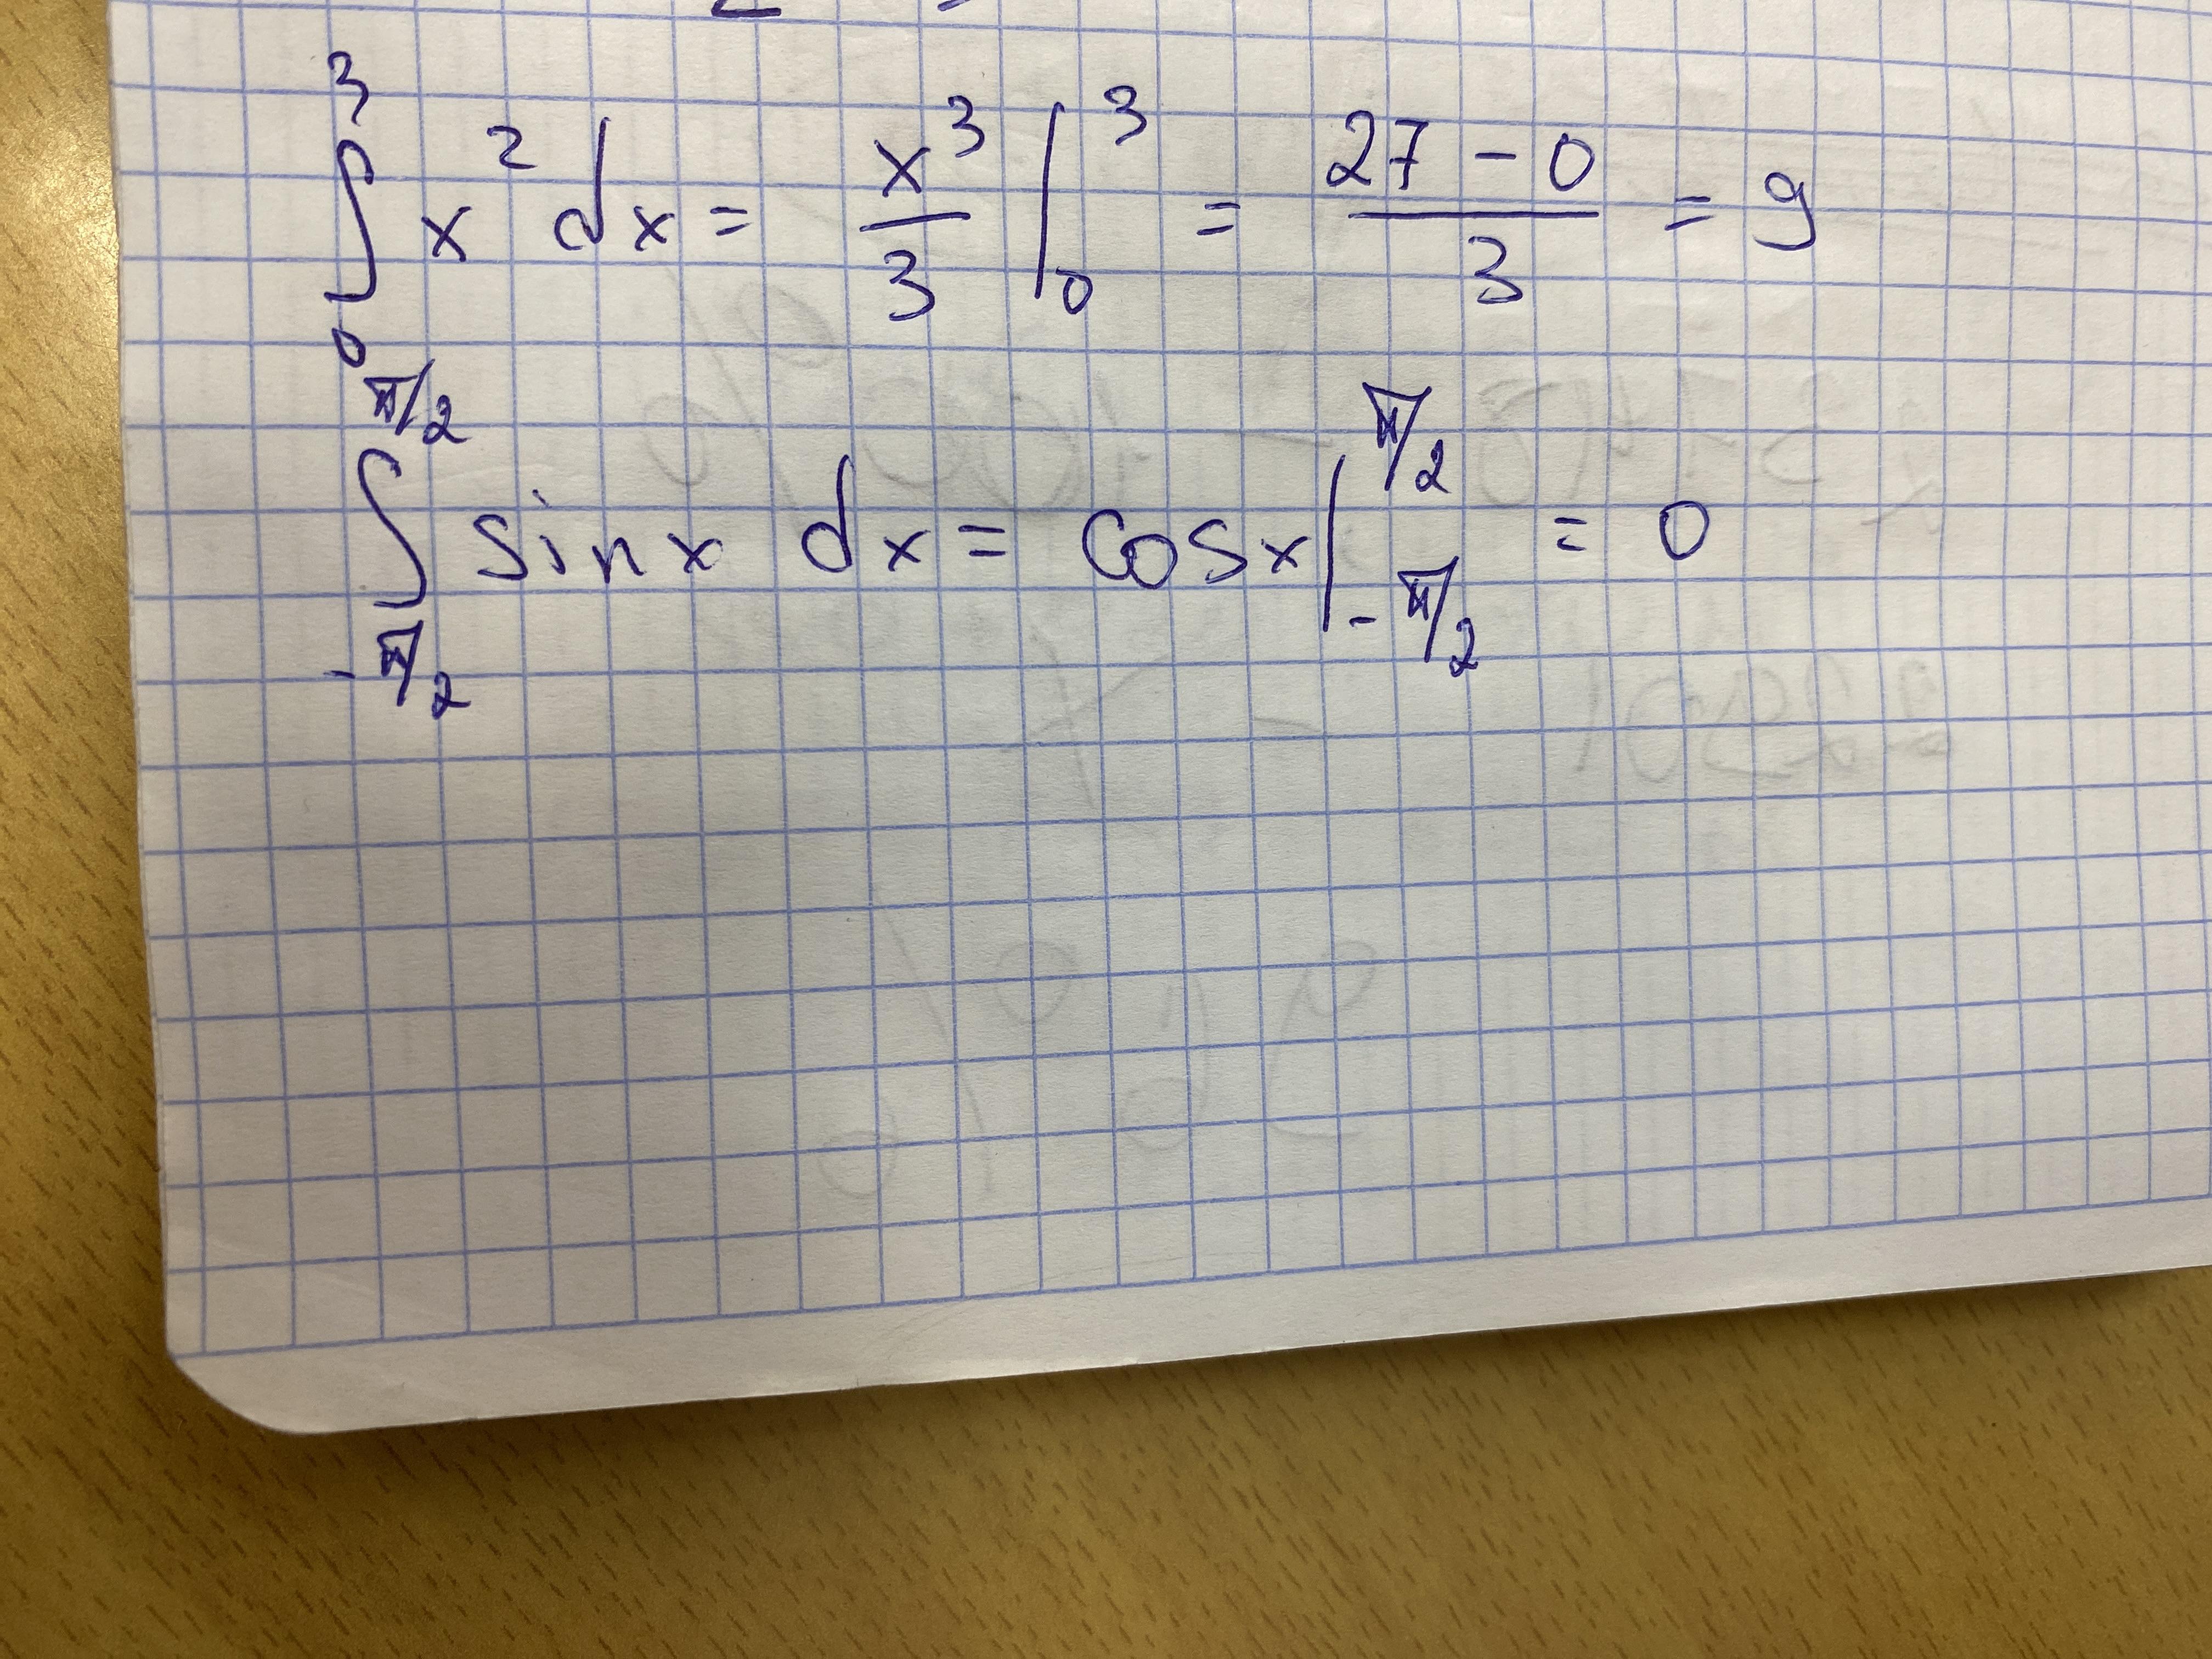 ∫₀³ x² dx = x³/3 |₀³ = (27 - 0)/3 = 9
∫_{-π/2}^{π/2} sin x dx = cos x |_{-π/2}^{π/2} = 0